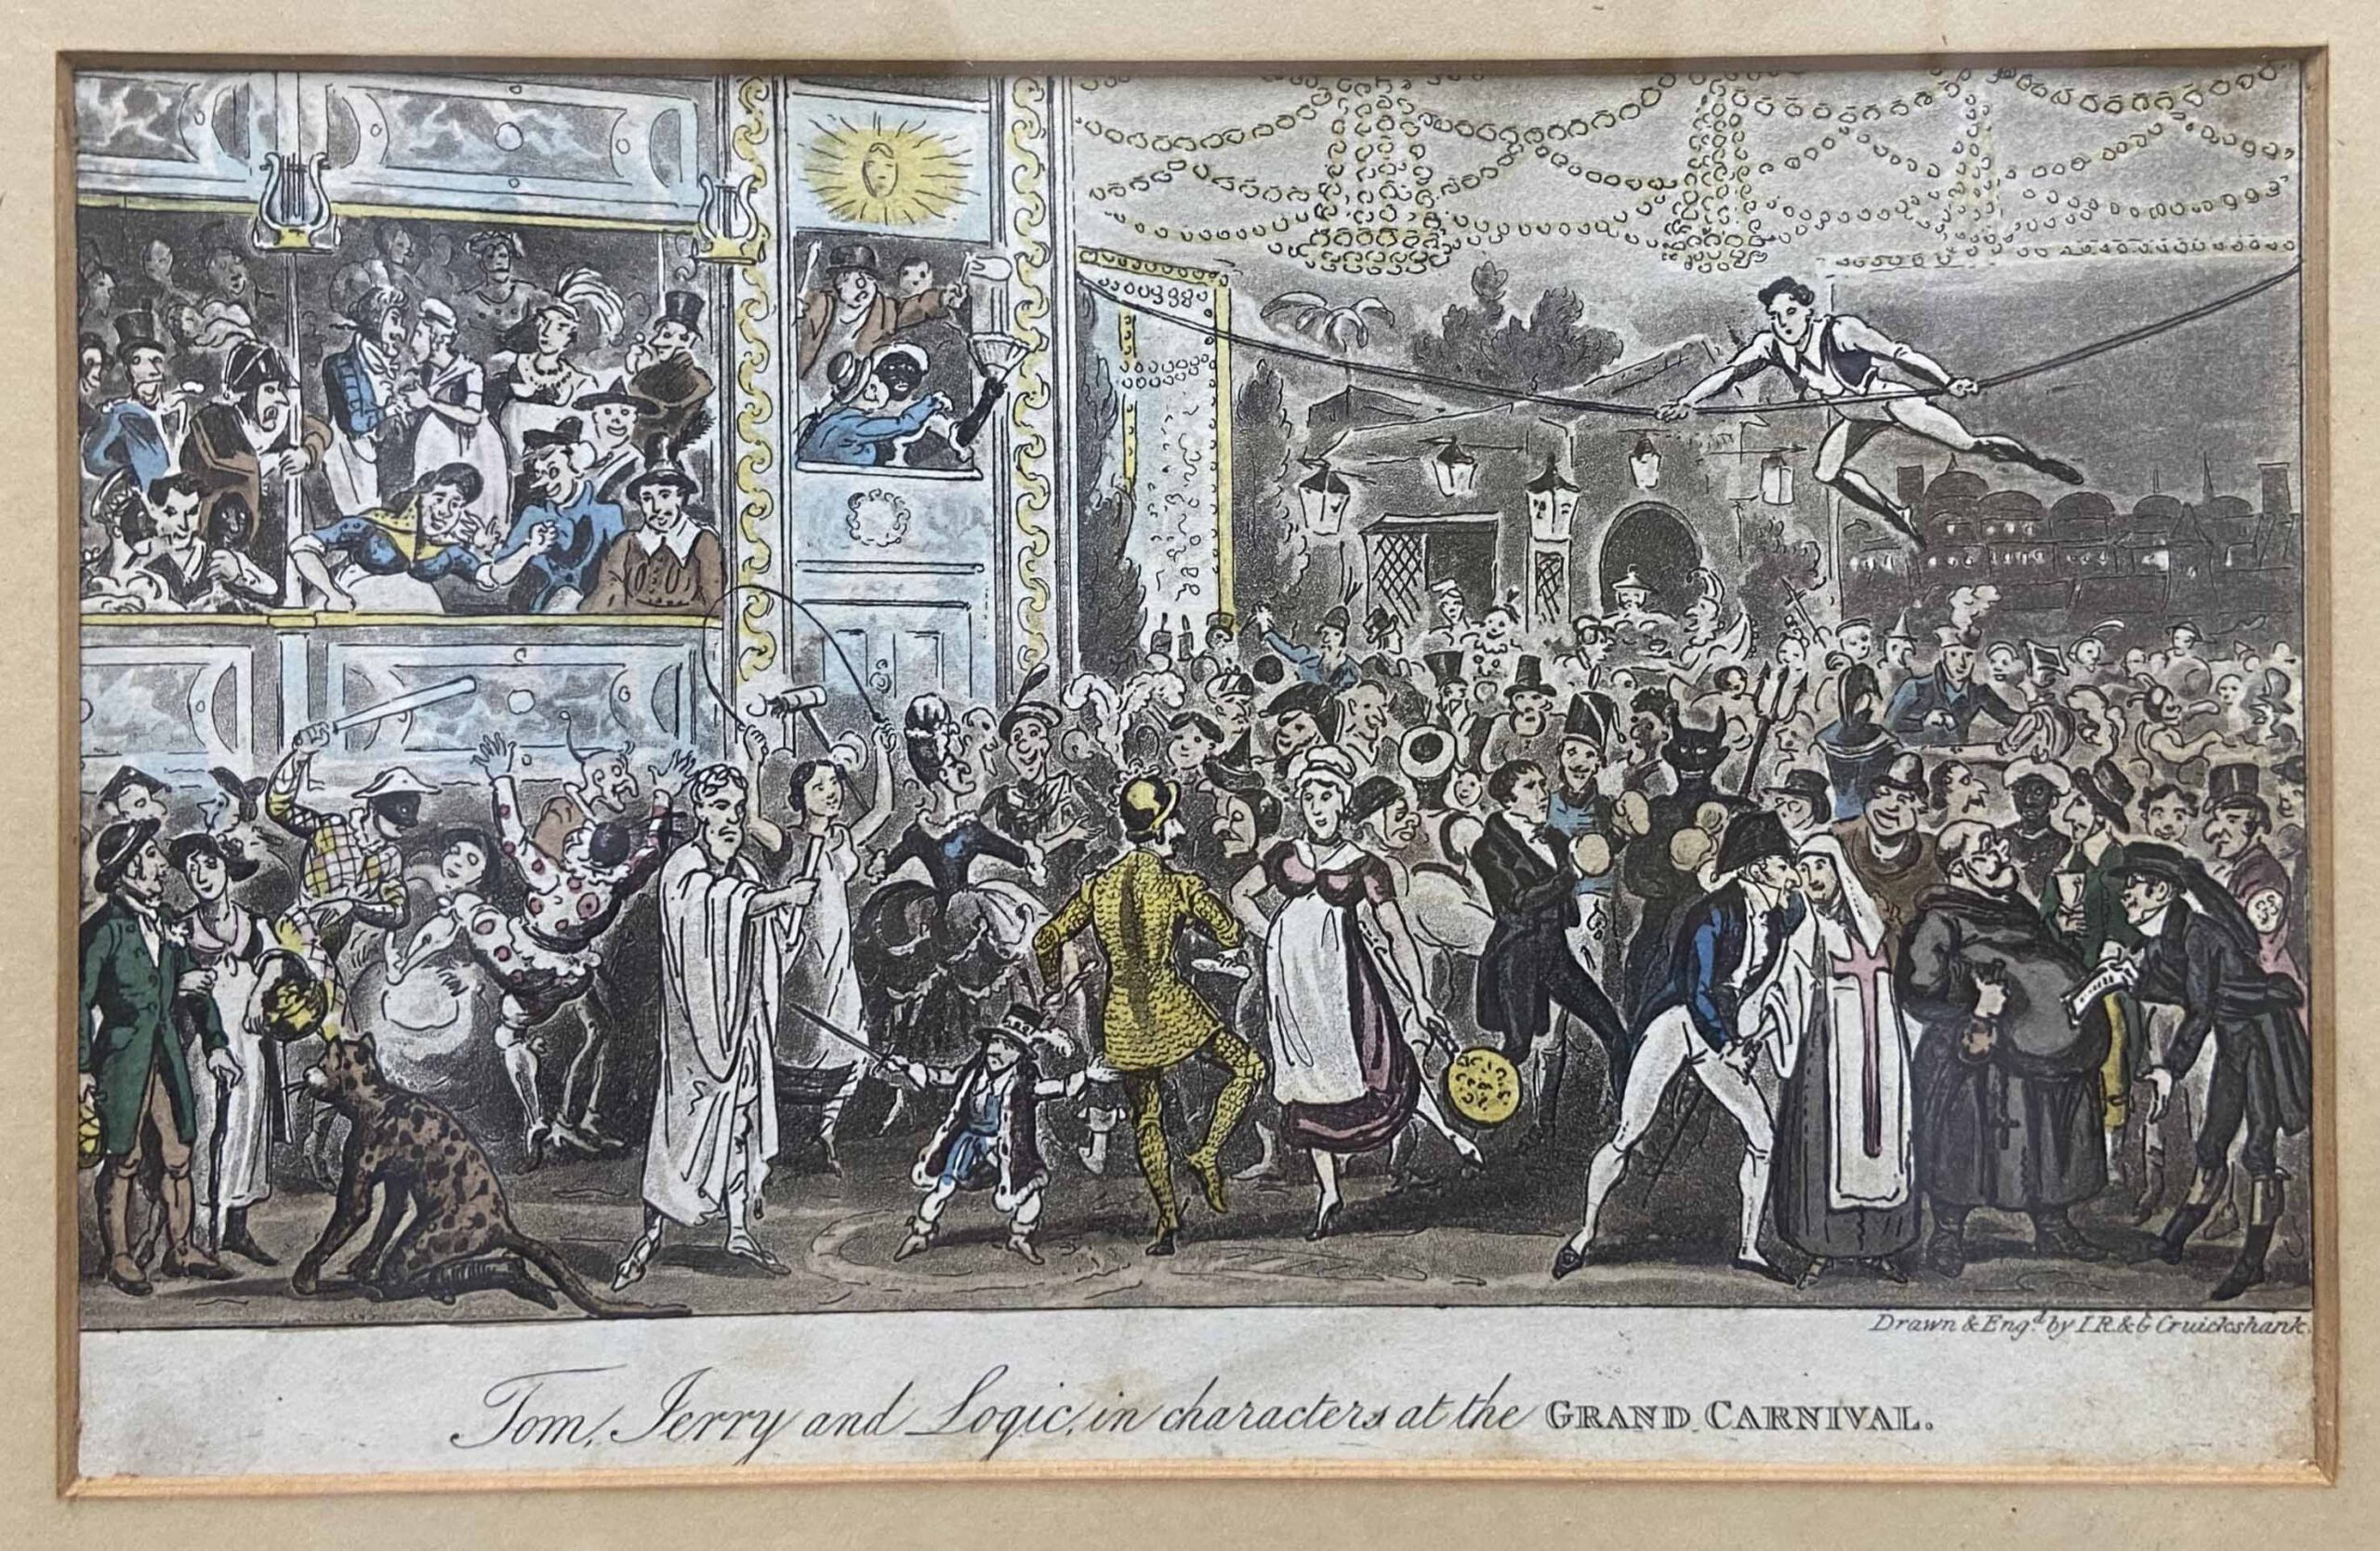 Drawn & Engd by I.R. & G Cruickshank.
Tom, Jerry and Logic, in characters at the GRAND CARNIVAL.